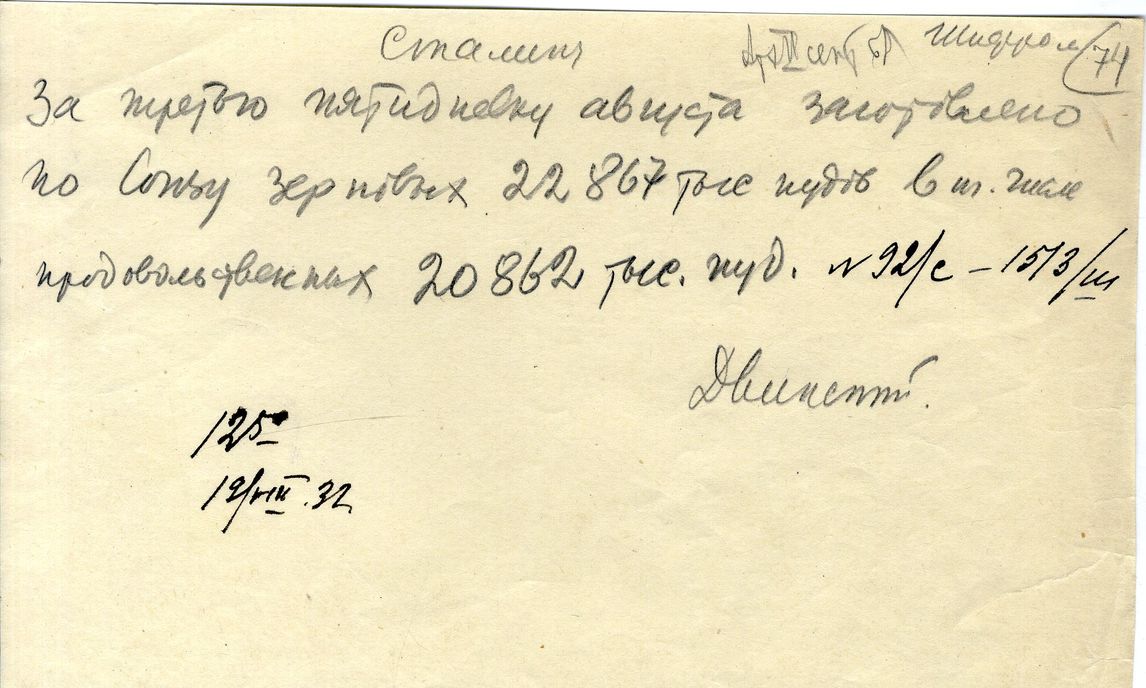 Шифром 74
Сталину
За третью пятидневку августа заготовлено
по Союзу зерновых 22 867 тыс пудов в т. числе
продовольственных 20 862 тыс. пуд. N 92/с – 1513/ш
Двинский.
125
19/VIII.32